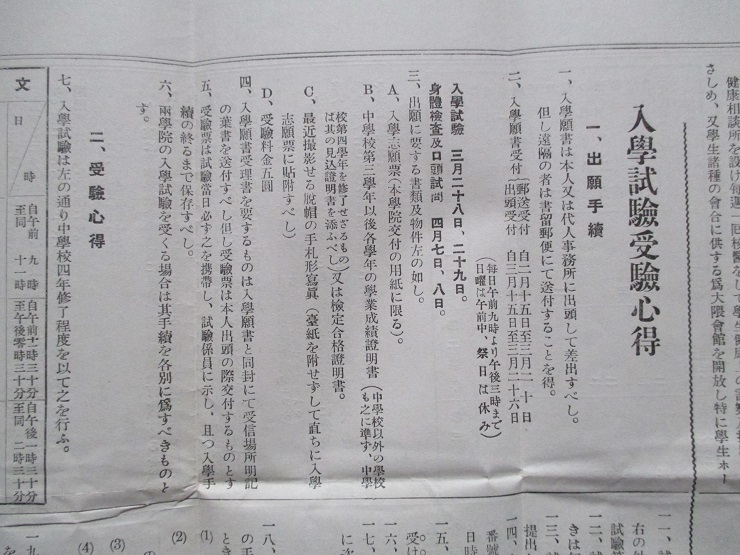 健康相談所を設け每週一回校醫をして學生健康上の
さしめ、又學生諸種の會合に供する爲大隈會館を開放し特に學生ホー
入學試驗受驗心得
一、出願手續
一、入學願書は本人又は代人事務所に出頭して差出すべし。
但し遠隔の者は書留郵便にて送付することを得。
二、入學願書受付
郵送受付 自二月十五日至三月二十日
出頭受付 自三月十五日至三月二十六日
(每日午前九時より午後三時まで
日曜は午前中、祭日は休み)
入學試驗 三月二十八日、二十九日。
身體檢査及口頭試問 四月七日、八日。
三、出願に要する書類及物件左の如し。
A、入學志願票(本學院交付の用紙に限る)。
B、中學校第三學年以後各學年の學業成績證明書(中學校以外の學校
も之に準ず、中學
校第四學年を修了せざるもの
は其の見込證明書を添ふべし)又は檢定合格證明書。
C、最近撮影せる脫帽の手札形寫眞(臺紙を附せずして直ちに入學
志願票に貼附すべし)
D、受驗料金五圓
四、入學願書受理書を要するものは入學願書と同封にて受信場所明記
の葉書を送付すべし但し受驗票は本人出頭の際交付するものとす
五、受驗票は試驗當日必ず之を携帶し、試驗係員に示し、且つ入學手
續の終るまで保存すべし。
六、兩學院の入學試驗を受くる場合は其手續を各別に爲すべきものと
す。
二、受驗心得
七、入學試驗は左の通り中學校四年修了程度を以て之を行ふ。
文
日 時
自午前 九時
至同 十一時
自午前十一時三十分
至午後零時三十分
自午後一時三十分
至同 二時三十分
一一、
右の
一二、
試驗
きは
一三、
提出
一四、
番號
日時
一五、
受け
一六、
一七、
に次
一八、
の手
とき
(1)
(2)
(3)
(4)
一九、